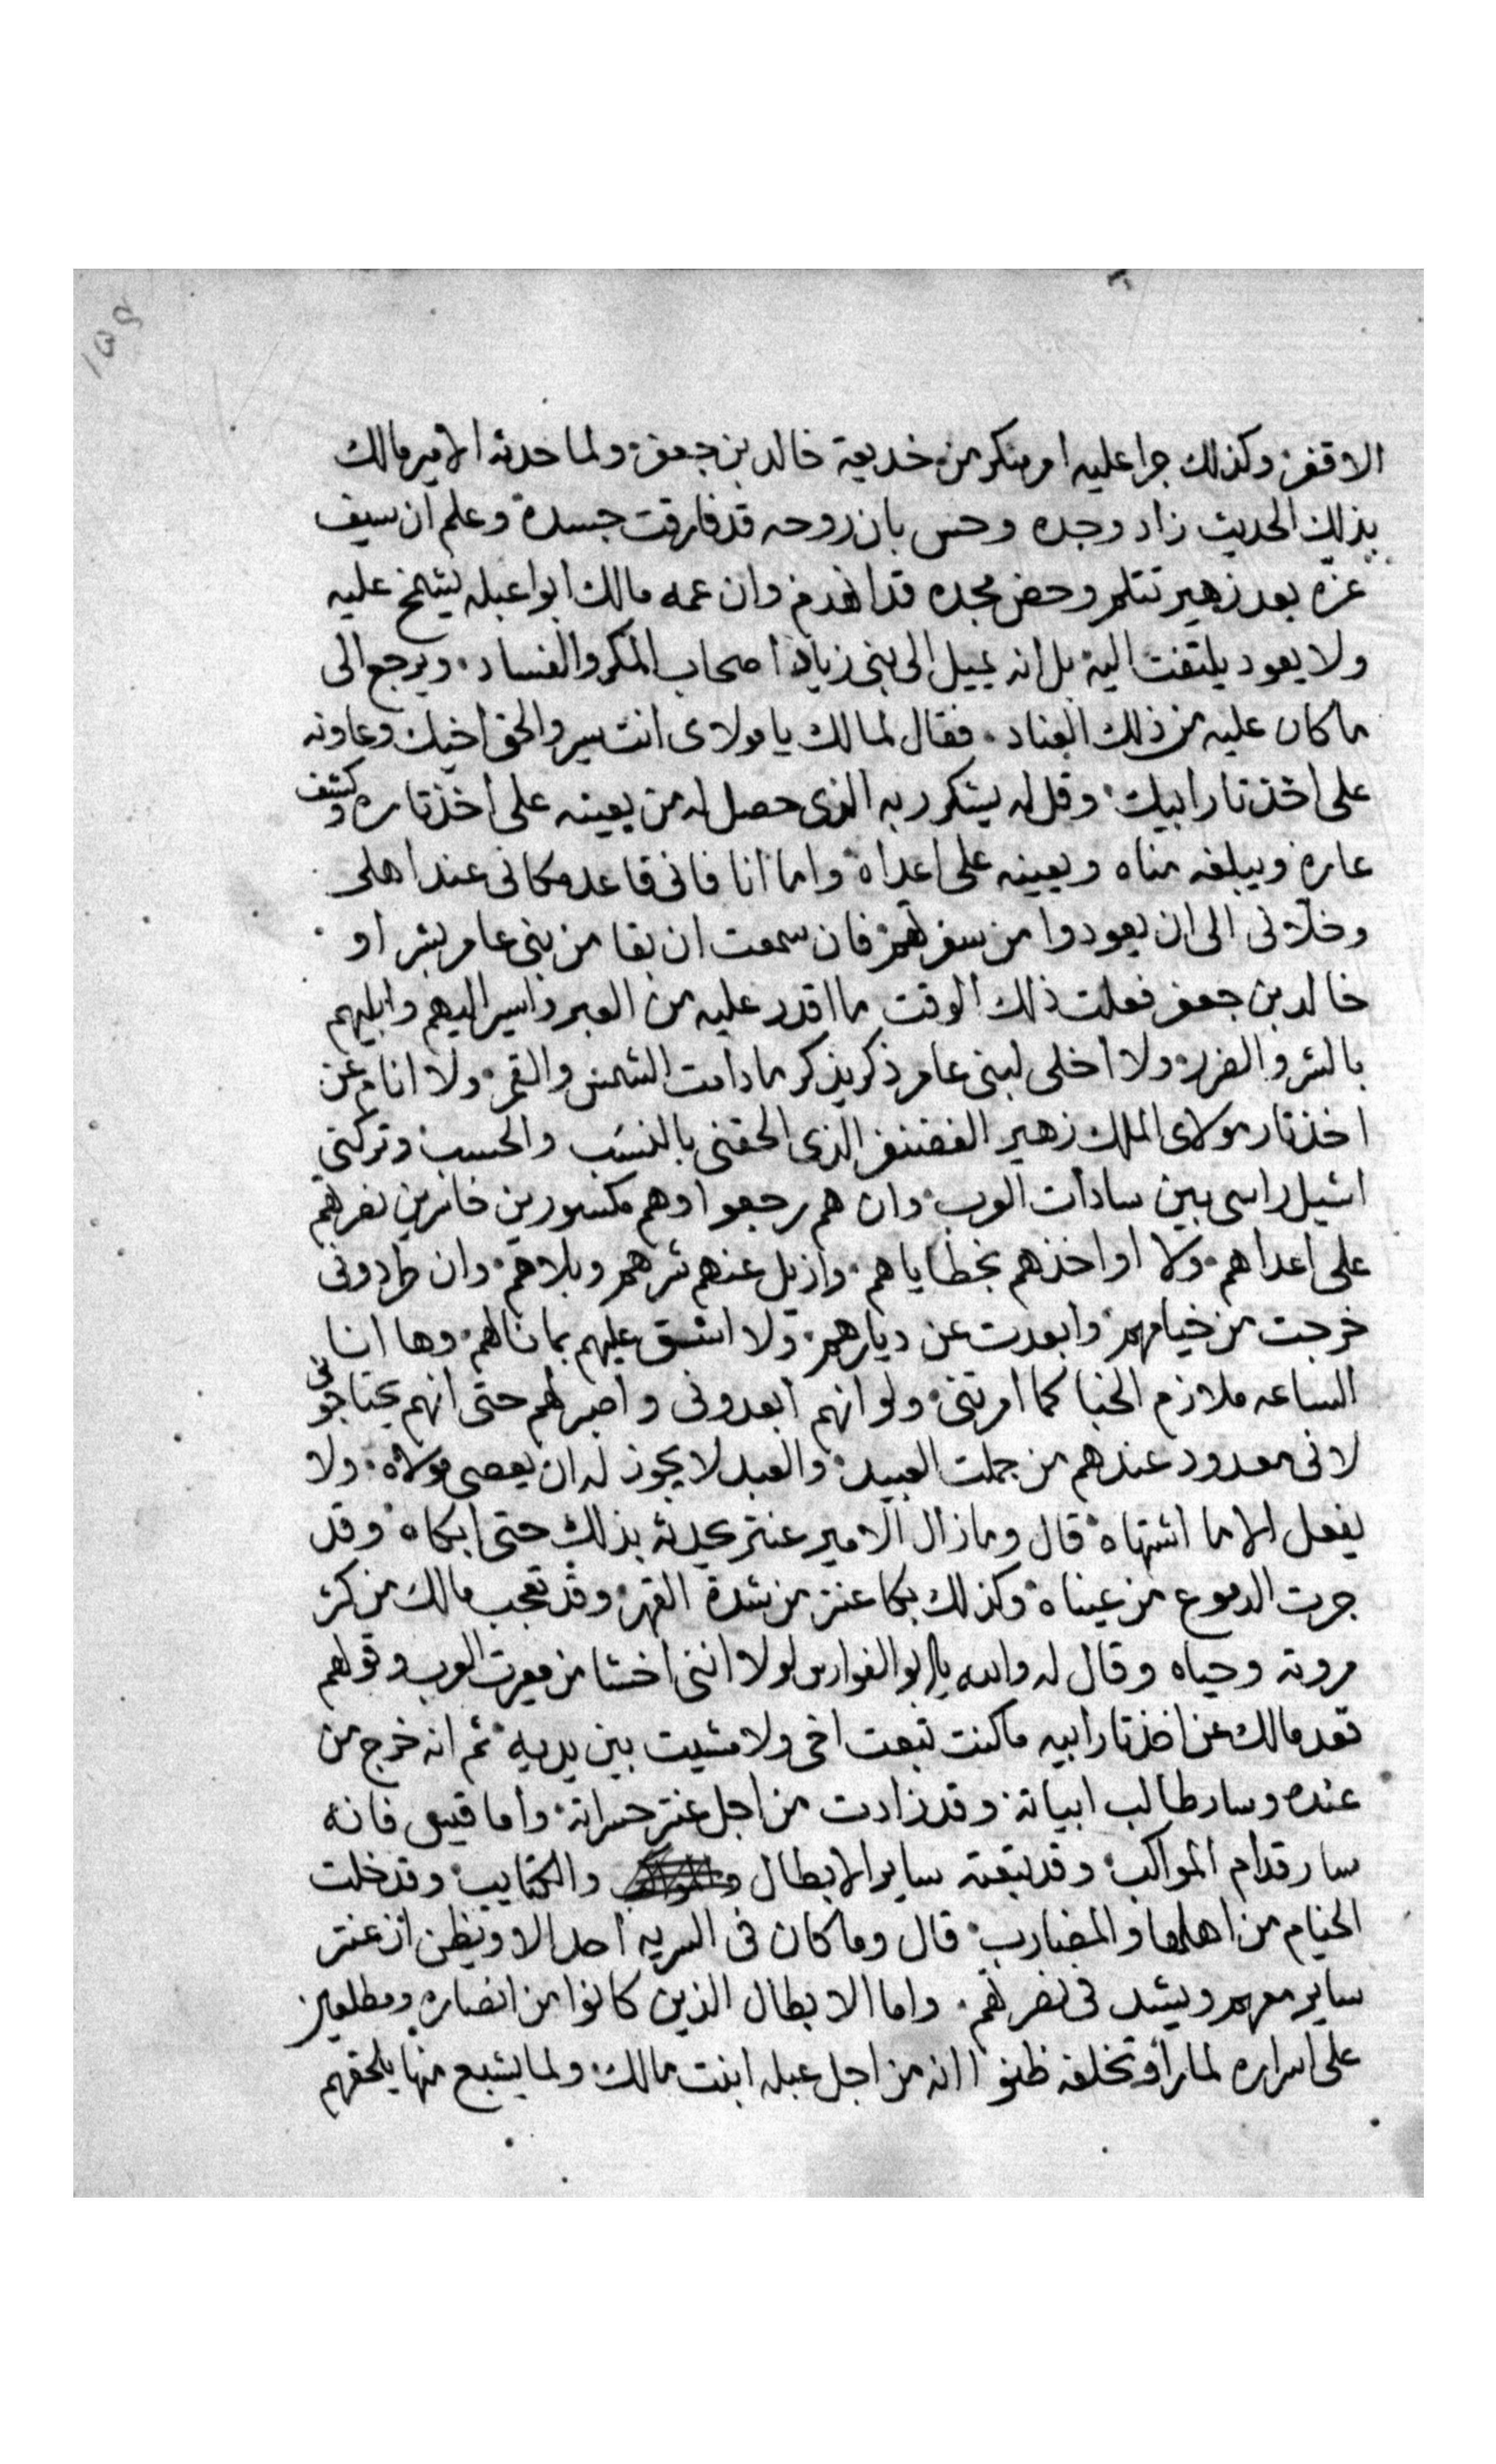 ١٥٩
الاقفر وكذلك جرا عليه امر منكر من خديعة خالد بن جعفر ولما حدثه الامير مالك
بذلك الحديث زاد وجده وحس بان روحه قد فارقت جسده وعلم ان سيف
عزه بعد زهير تتلم وحصن مجده قد انهدم وان عمه مالك ابوا عبله يشمخ عليه
ولا يعود يلتفت اليه بل انه يميل الى بني زياد اصحاب المكر والفساد ويرجع الى
ما كان عليه من ذلك العناد فقال لمالك يا مولاى انت سير والحق اخيك وعاونه
على اخذ تار ابيك وقل له يشكر ربه الذى حصل له من يعينه على اخذ تاره وكشف
عاره ويبلغه مناه ويعينه على اعداه واما انا فانى قاعد مكانى عند اهلى
وخلانى الى ان يعودوا من سفرتهم فان سمعت ان بقا من بنى عامر بشر او
خالد بن جعفر فعلت ذلك الوقت ما اقدر عليه من العبر واسير اليهم وابليهم
بالشر والضرر ولا اخلى لبنى عامر ذكر يذكر ما دامت الشمس والقمر ولا انام عن
اخذ تار مولاى الملك زهير الغضنفر الذى الحقنى بالنسب والحسب وتركنى
اشيل راسى بين سادات العرب وان هم رجعوا وهم مكسورين خاسرين نصرتهم
على اعداهم ولا اواخذهم بخطاياهم وازيل عنهم شرهم وبلاهم وان طردونى
خرجت من خيامهم وابعدت عن ديارهم ولا اشق عليهم بما نالهم وها انا
الساعه ملازم الخبا كما امرتنى ولو انهم ابعدونى واصبر لهم حتى انهم يحتاجونى
لانى معدود عندهم من جملت العبيد والعبد لا يجوز له ان يعصى مولاه ولا
يفعل الا ما اشتهاه قال وما زال الامير عنتر يحدثه بذلك حتى ابكاه وقد
جرت الدموع من عيناه وكذلك بكا عنتر من شدة القهر وقد تعجب مالك من كثر
مروته وحياه وقال له والله يا ابو الفوارس لولا اننى اخشا من معيرت العرب وقولهم
قعد مالك عن اخذ تار ابيه ما كنت تبعت اخى ولا مشيت بين يديه ثم انه خرج من
عنده وسار طالب ابياته وقد زادت من اجل عنتر حسراته واما قيس فانه
سار قدام المواكب وقد تبعته ساير الابطال والكتايب وقد خلت
الخيام من اهلها والمضارب قال وما كان فى السريه احد الا ويظن ان عنتر
ساير معهم ويشد فى نصرتهم واما الابطال الذين كانوا من انصاره ومطلعين
على اسراره لما راو تخلفه ظنوا انه من اجل عبله ابنت مالك ولما يشبع منها يلحقهم